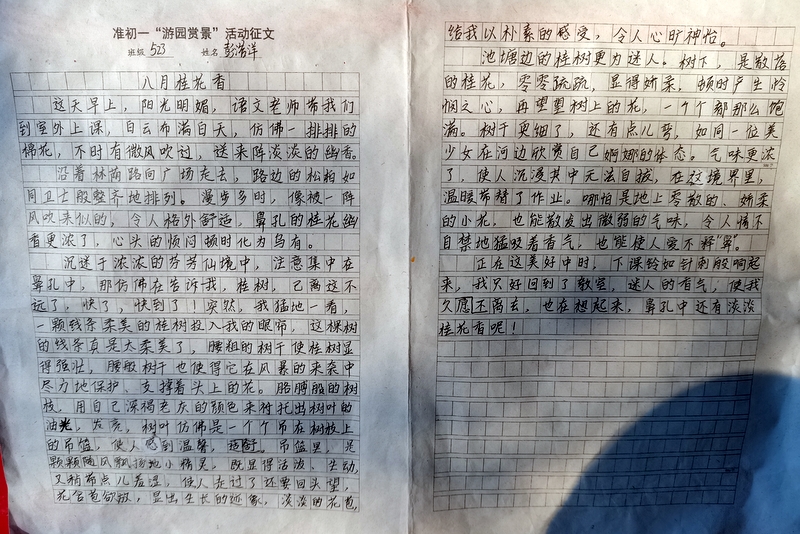 准初一“游园赏景”活动征文
班级 523 姓名 彭浩洋
八月桂花香
这天早上，阳光明媚，语文老师带我们
到室外上课，白云布满白天，仿佛一排排的
棉花，不时有微风吹过，送来阵淡淡的幽香。
沿着林荫路向广场走去，路边的松柏如
同卫士般整齐地排列。漫步多时，像被一阵
风吹来似的，令人格外舒适，鼻孔的桂花幽
香更浓了，心头的烦闷顿时化为乌有。
沉迷于浓浓的芬芳仙境中，注意集中在
鼻孔中，那仿佛在告诉我，桂树，已离这不
远了，快了，快到了！突然，我猛地一看，
一颗线条柔美的桂树投入我的眼帘，这棵树
的线条真是太柔美了，腰粗的树干使桂树显
得强壮，腰般树干也使得它在风暴的来袭中
尽力地保护、支撑着头上的花。胳膊般的树
枝，用自己深褐老灰的颜色来衬托出树叶的
油光，发亮，树叶仿佛是一个个吊在树枝上
的吊篮，使人感到温馨，适舒。吊篮里，是
颗颗随风飘扬地小精灵，既显得活泼、生动，
又稍带点儿羞涩，使人在过了还要回头望，
花含苞欲放，显出生长的迹象，淡淡的花苞，
给我以朴素的感受，令人心旷神怡。
池塘边的桂树更为迷人。树下，是散落
的桂花，零零疏疏，显得娇柔，顿时产生怜
悯之心，再望望树上的花，一个个都那么饱
满。树干更细了，还有点儿弯，如同一位美
少女在河边欣赏自己婀娜的体态。气味更浓
了，使人沉浸其中无法自拔，在这境界里，
温暖带替了作业。哪怕是地上零散的、娇柔
的小花，也能散发出微弱的气味，令人情不
自禁地猛吸着香气，也能使人爱不释“鼻”。
正在这美好中时，下课铃如针刺般响起
来，我只好回到了教室，迷人的香气，使我
久愿不离去，也在想起来，鼻孔中还有淡淡
桂花香呢！